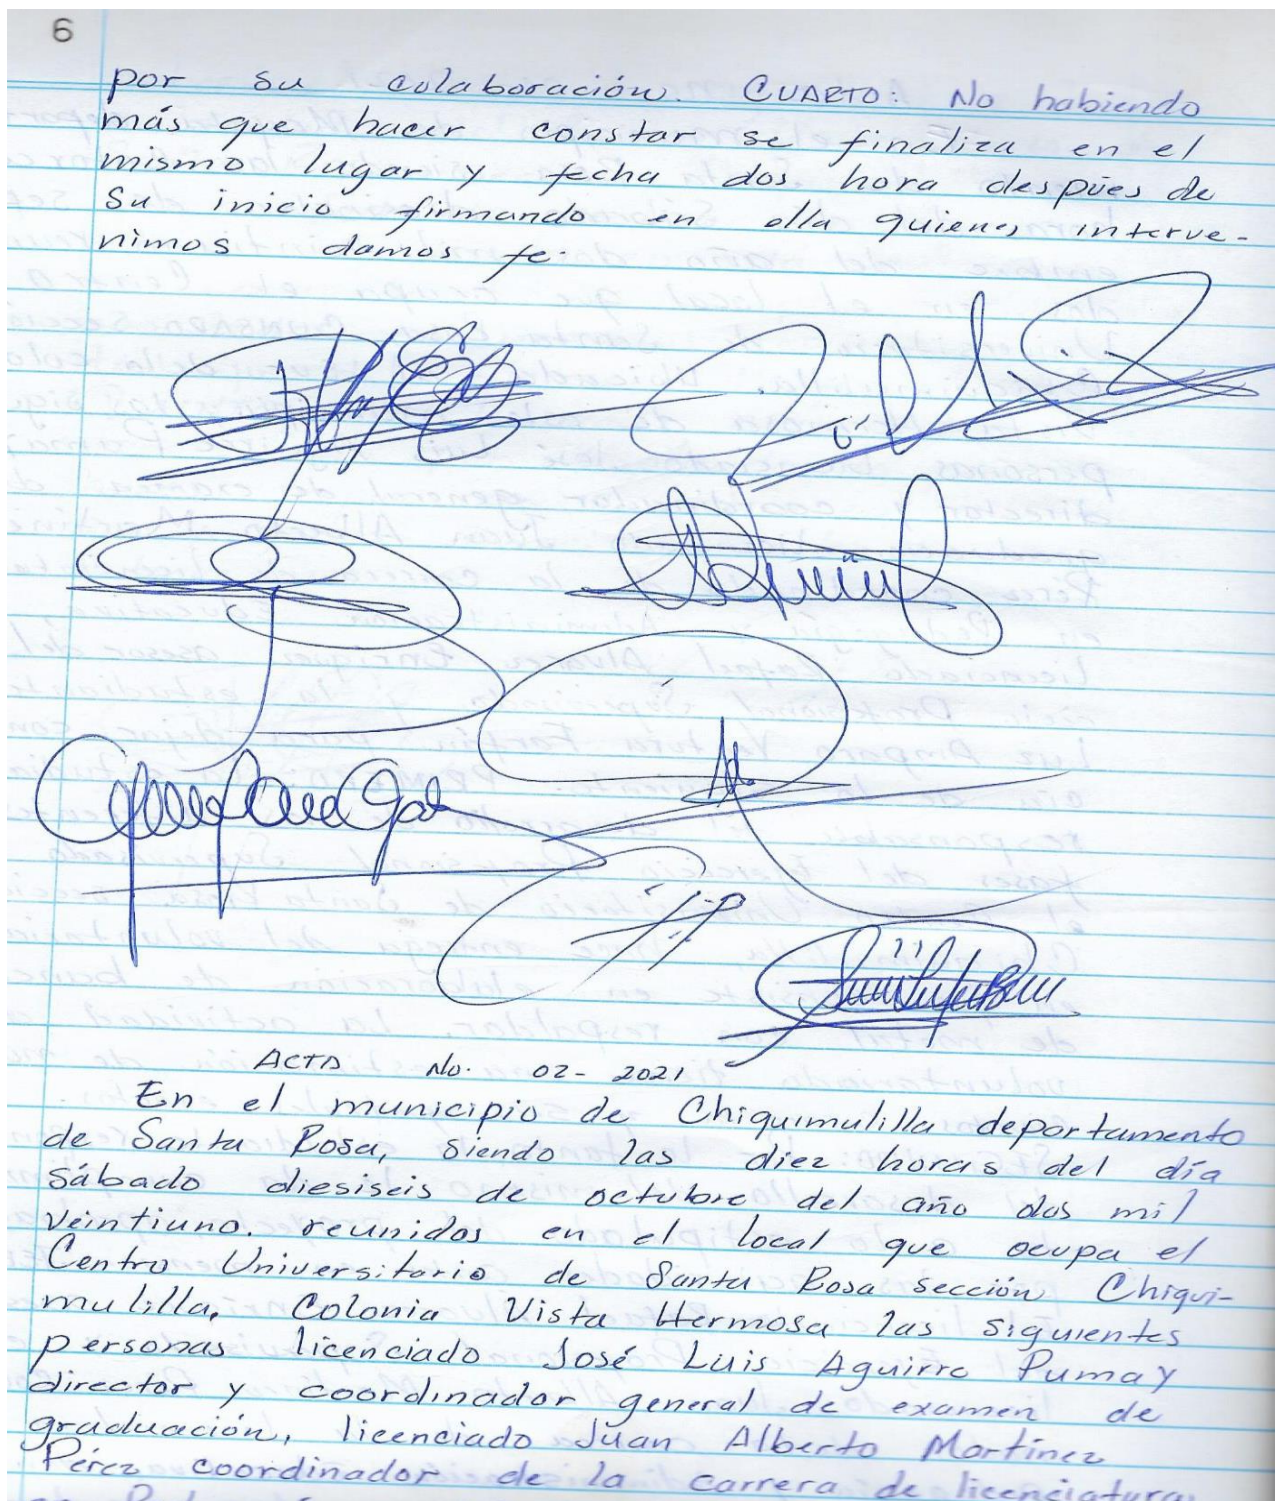 6
por su colaboración. CUARTO: No habiendo
más que hacer constar se finaliza en el
mismo lugar y fecha dos hora despúes de
su inicio firmando en ella quienes interve-
nimos damos fe.
ACTA No. 02-2021
En el municipio de Chiquimulilla departamento
de Santa Rosa, siendo las diez horas del día
sábado diesiseis de octubre del año dos mil
veintiuno. reunidos en el local que ocupa el
Centro Universitario de Santa Rosa sección Chiqui-
mulilla, Colonia Vista Hermosa las siguientes
personas licenciado José Luis Aguirre Pumay
director y coordinador general de examen de
graduación, licenciado Juan Alberto Martínez
Pérez coordinador de la carrera de licenciatura